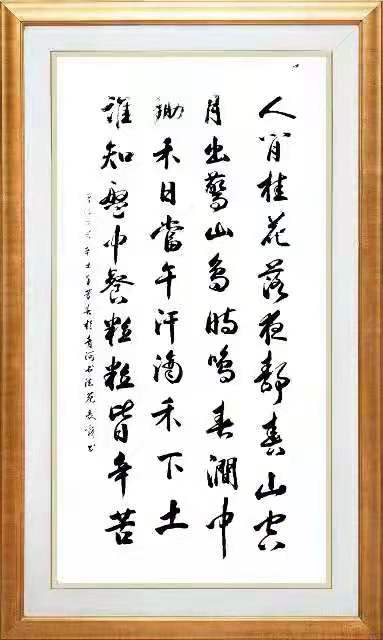 人閒桂花落夜靜春山空
月出驚山鳥時鳴春澗中
鋤禾日當午汗滴禾下土
誰知盤中餐粒粒皆辛苦